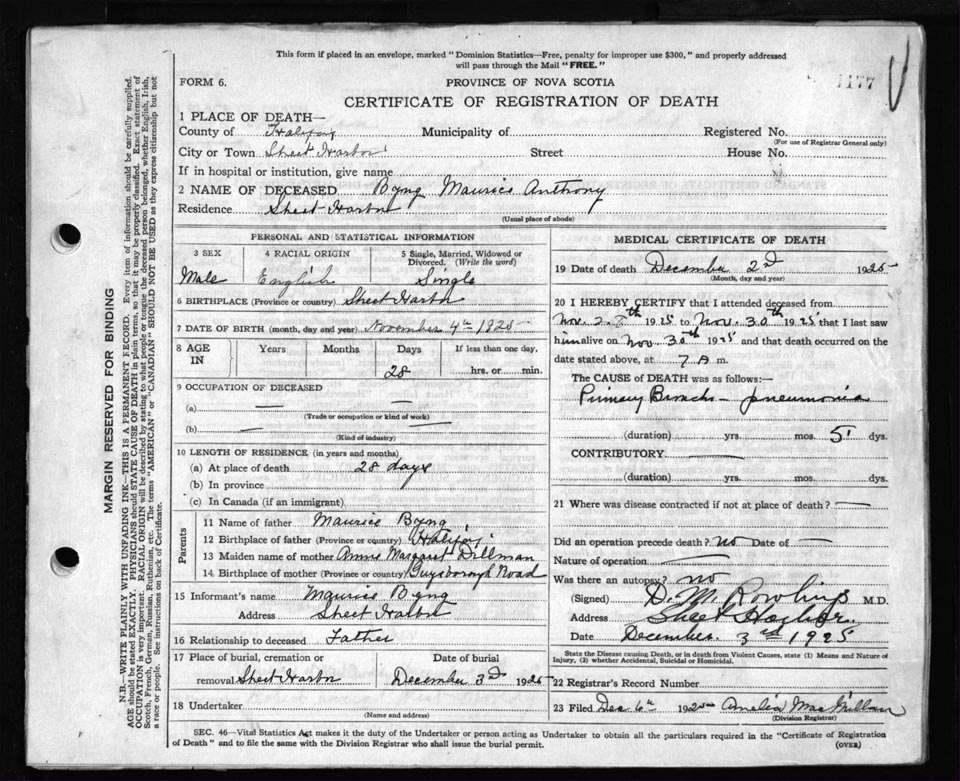 This form if placed in an envelope, marked "Dominion Statistics—Free, penalty for improper use $300," and properly addressed
will pass through the Mail "FREE."
FORM 6.
PROVINCE OF NOVA SCOTIA
1177
CERTIFICATE OF REGISTRATION OF DEATH
1 PLACE OF DEATH—
County of Halifax Municipality of Registered No.
(For use of Registrar General only)
City or Town Sheet Harbor Street House No.
If in hospital or institution, give name
2 NAME OF DECEASED Byng Maurice Anthony
Residence Sheet Harbor
(Usual place of abode)
PERSONAL AND STATISTICAL INFORMATION
3 SEX 4 RACIAL ORIGIN 5 Single, Married, Widowed or
Divorced. (Write the word)
Male English Single
6 BIRTHPLACE (Province or country) Sheet Harbor
7 DATE OF BIRTH (month, day and year) November 4th 1925
8 AGE IN Years Months Days If less than one day,
28 hrs. or min.
9 OCCUPATION OF DECEASED
(a) — —
(Trade or occupation or kind of work)
(b) — —
(Kind of industry)
10 LENGTH OF RESIDENCE (in years and months)
(a) At place of death 28 days
(b) In province
(c) In Canada (if an immigrant)
Parents
11 Name of father Maurice Byng
12 Birthplace of father (Province or country) Halifax
13 Maiden name of mother Annie Margaret Dillman
14 Birthplace of mother (Province or country) Guysborough Road
15 Informant's name Maurice Byng
Address Sheet Harbor
16 Relationship to deceased Father
17 Place of burial, cremation or Date of burial
removal Sheet Harbor December 3d 1925
18 Undertaker
(Name and address)
MEDICAL CERTIFICATE OF DEATH
19 Date of death December 2d 1925
(Month, day and year)
20 I HEREBY CERTIFY that I attended deceased from
Nov. 28th 1925 to Nov. 30th 1925 that I last saw
him alive on Nov 30th 1925 and that death occurred on the
date stated above, at 7 A m.
The CAUSE OF DEATH was as follows:—
Primary Broncho-pneumonia
(duration) yrs. mos. 5 dys.
CONTRIBUTORY —
(duration) yrs. mos. dys.
21 Where was disease contracted if not at place of death? —
Did an operation precede death? no Date of —
Nature of operation —
Was there an autopsy? no
(Signed) D. M. Rowlings M.D.
Address Sheet Harbor.
Date December. 3rd 1925
State the Disease causing Death, or in death from Violent Causes, state (1) Means and Nature of
Injury, (2) whether Accidental, Suicidal or Homicidal.
22 Registrar's Record Number
23 Filed Dec 6th 1925 Amelia MacMillan
(Division Registrar)
SEC. 46—Vital Statistics Act makes it the duty of the Undertaker or person acting as Undertaker to obtain all the particulars required in the "Certificate of Registration
of Death" and to file the same with the Division Registrar who shall issue the burial permit.
(OVER)
MARGIN RESERVED FOR BINDING
N.B.—WRITE PLAINLY WITH UNFADING INK—THIS IS A PERMANENT RECORD. Every item of information should be carefully supplied.
AGE should be stated EXACTLY. PHYSICIANS should STATE CAUSE OF DEATH in plain terms, so that it may be properly classified. Exact statement of
OCCUPATION is very important. RACIAL ORIGIN will be described by stating to what people or tongue the deceased person belonged, whether English, Irish,
Scotch, French, German, Russian, Ruthenian, etc. The terms "AMERICAN" or "CANADIAN" SHOULD NOT BE USED as they express citizenship but not
a race or people. See instructions on back of Certificate.